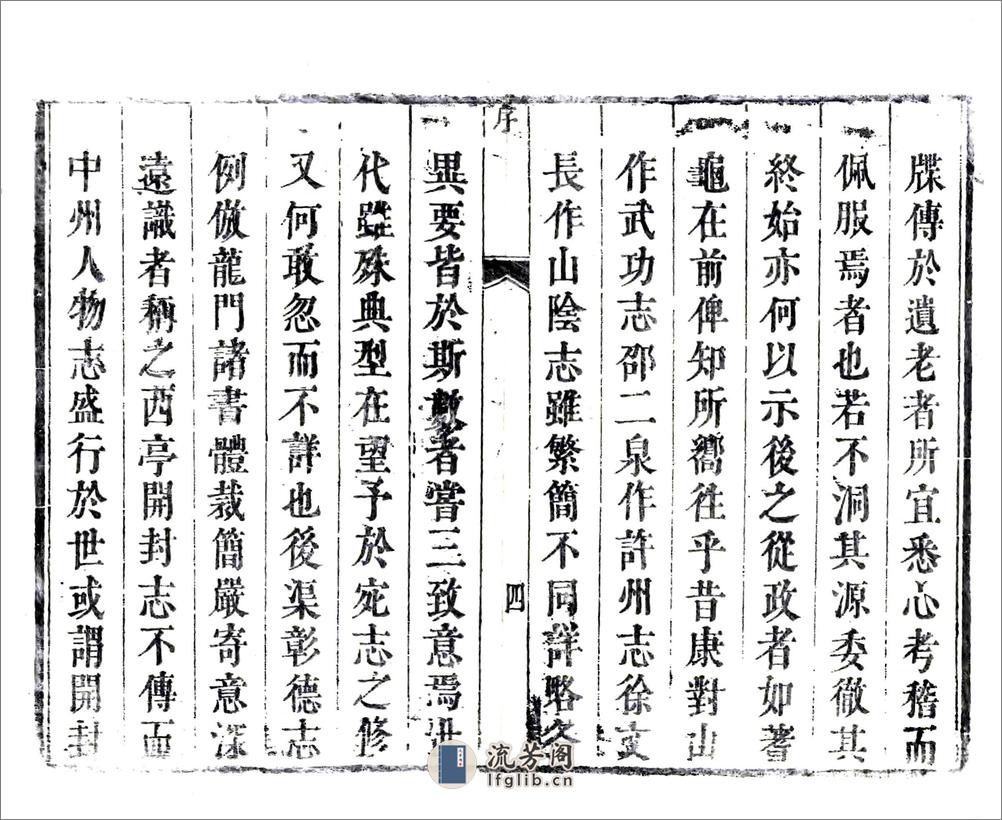 牒傳於遺老者所宜悉心考稽而
佩服焉者也若不洞其源委徹其
終始亦何以示後之從政者如蓍
龜在前俾知所嚮往乎昔康對山
作武功志邵二泉作許州志徐文
長作山陰志雖繁簡不同詳略各
序
四
異要皆於斯數者嘗三致意焉世
代雖殊典型在望予於宛志之修
又何敢忽而不詳也後渠彰德志
例倣龍門諸書體裁簡嚴寄意深
遠識者稱之西亭開封志不傳而
中州人物志盛行於世或謂開封
流芳阁
lfglib.cn